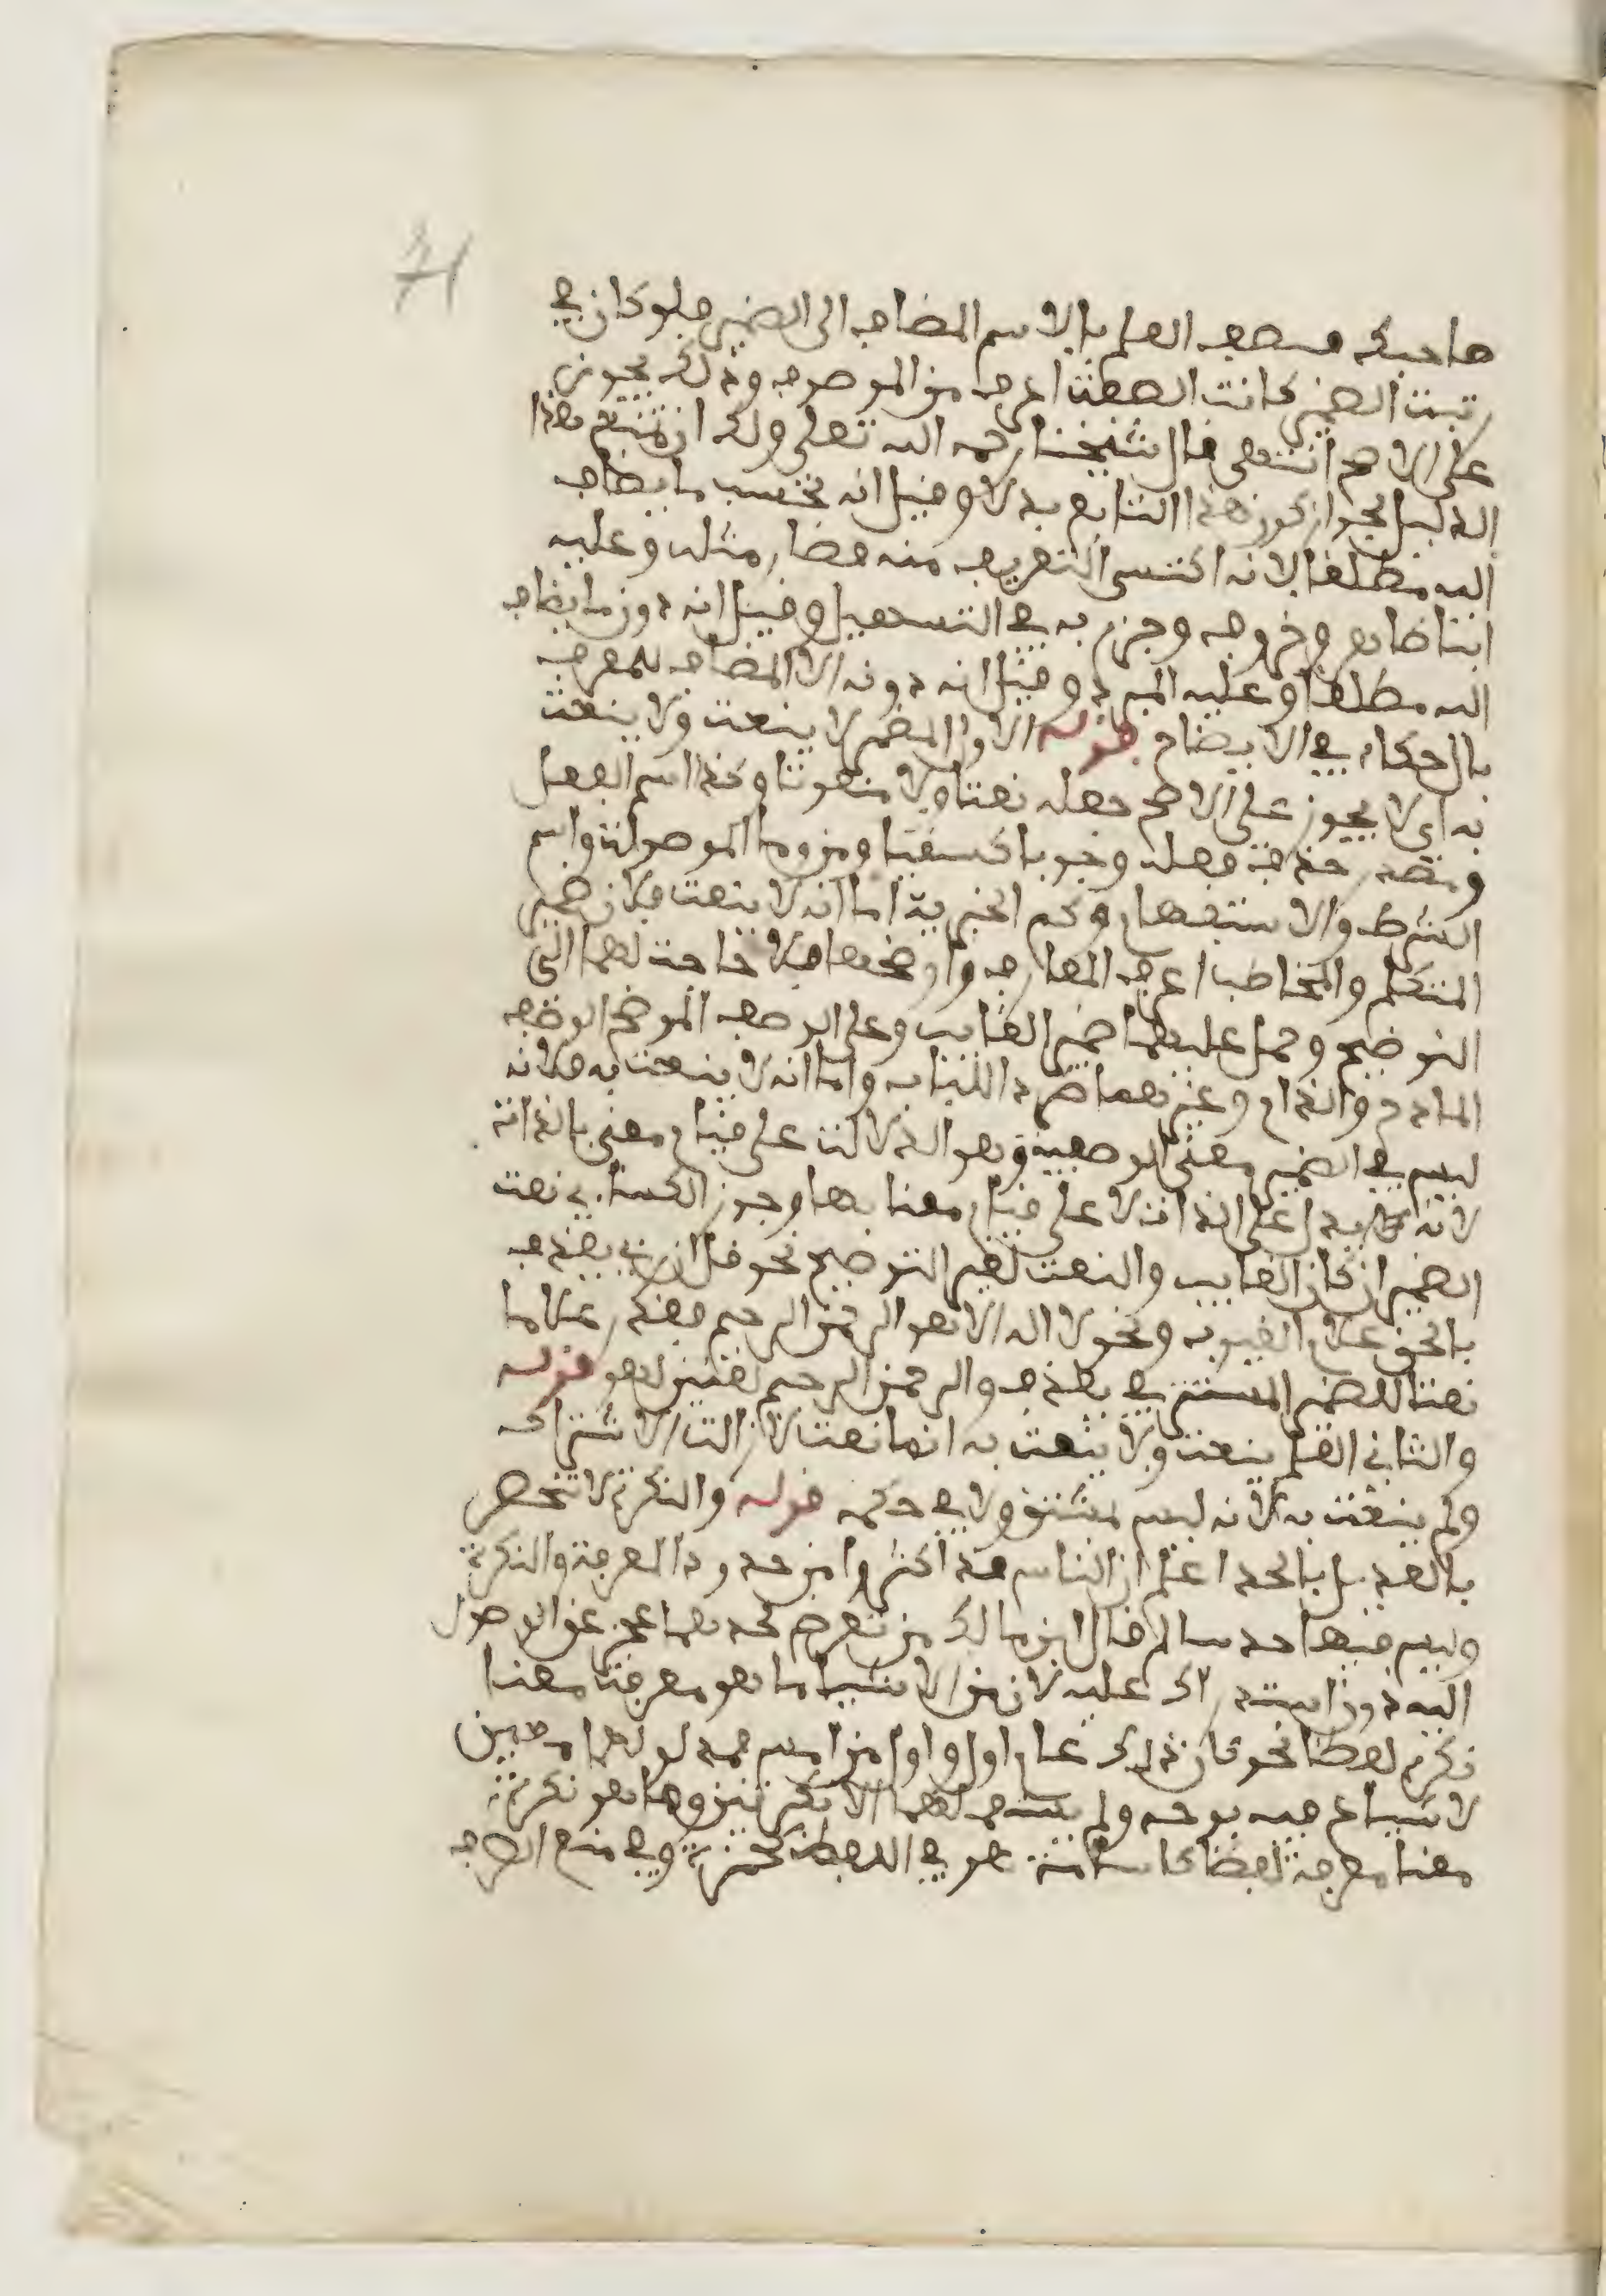 71
صاحبك فوصف العلم بالاسم المضاف الى الضمير فلو كان في
رتبت الضمير كانت الصفت اعرف من الموصوف وذلك يجوز
على الاصح انتهى فال شيخنا رحمه الله تعلى ولك ان تمنع هذا
الدليل بجواز كون هذا التابع بدلا وفيل انه بحسب ما يضاف
اليه مطلفا لانه اكتسى التعريف منه فصار مثله وعليه
ابن طاهر وخروف وجزم به في التسهيل وفيل انه دون ما يضاف
اليه مطلفا وعليه المبرد وفيل انه دونه الا المضاف للمعرف
بال حكاه في الايضاح فوله الاول المضمر لا ينعت ولا ينعت
به اى لا يجوز على الاصح جعله نعتا ولا منعوتا وكذا اسم الفعل
ومصدر حذف فعله وجوبا كسفيا ومن وما الموصولت واسم
الشرط والاستفهام وكم الخبرية اما انه لا ينعت فلان ضمير
المتكلم والمخاطب اعرف المعارف واوضحها فلا حاجت لهما الى
التوضيح وحمل عليهما ضمير الغايب وعلى الوصف الموضح الوصف
المادح والذام وغيرهما طردا للباب واما انه لا ينعت به فلانه
ليس في الضمير معنى الوصفية وهو الدلالت على فيام معنى بالذات
لانه يدل على الذات لا على فيام معنا بها وجوز الكساءي نعت
الضمير ان كان لغايب والنعت لغير التوضيح نحو فل ان ربي يفذف
بالحق علام الغيوب ونحو لا اله الا هو الرحمن الرحيم ففدر علاما
نعتا للضمير المستتر في يفذف والرحمن الرحيم نعتين لهو فوله
والثاني العلم ينعت ولا ينعت به انما نعت لازالت الاشتراك
ولم ينعت به لانه ليس بمشتق ولا في حكمه فوله والنكرة لا تحصر
بالعد بل بالحد اعلم ان الناس فد اكثروا من حدود المعرفة والنكرة
وليس فيها حد سالم فال ابن مالك من تعرض لحدهما عجز عن الوصول
اليه دون استدراك عليه لان من الاشياء ما هو معرفت معنا
نكرة لفظا نحو كان ذلك عام اول واول من امس فمدلولهما معين
لا شياع فيه بوجه ولم يستعملا الا نكرتين وما هو نكرة
معنا معرفة لفظا كاسامة هو في اللفظ كحمزة وفي منع الصرف